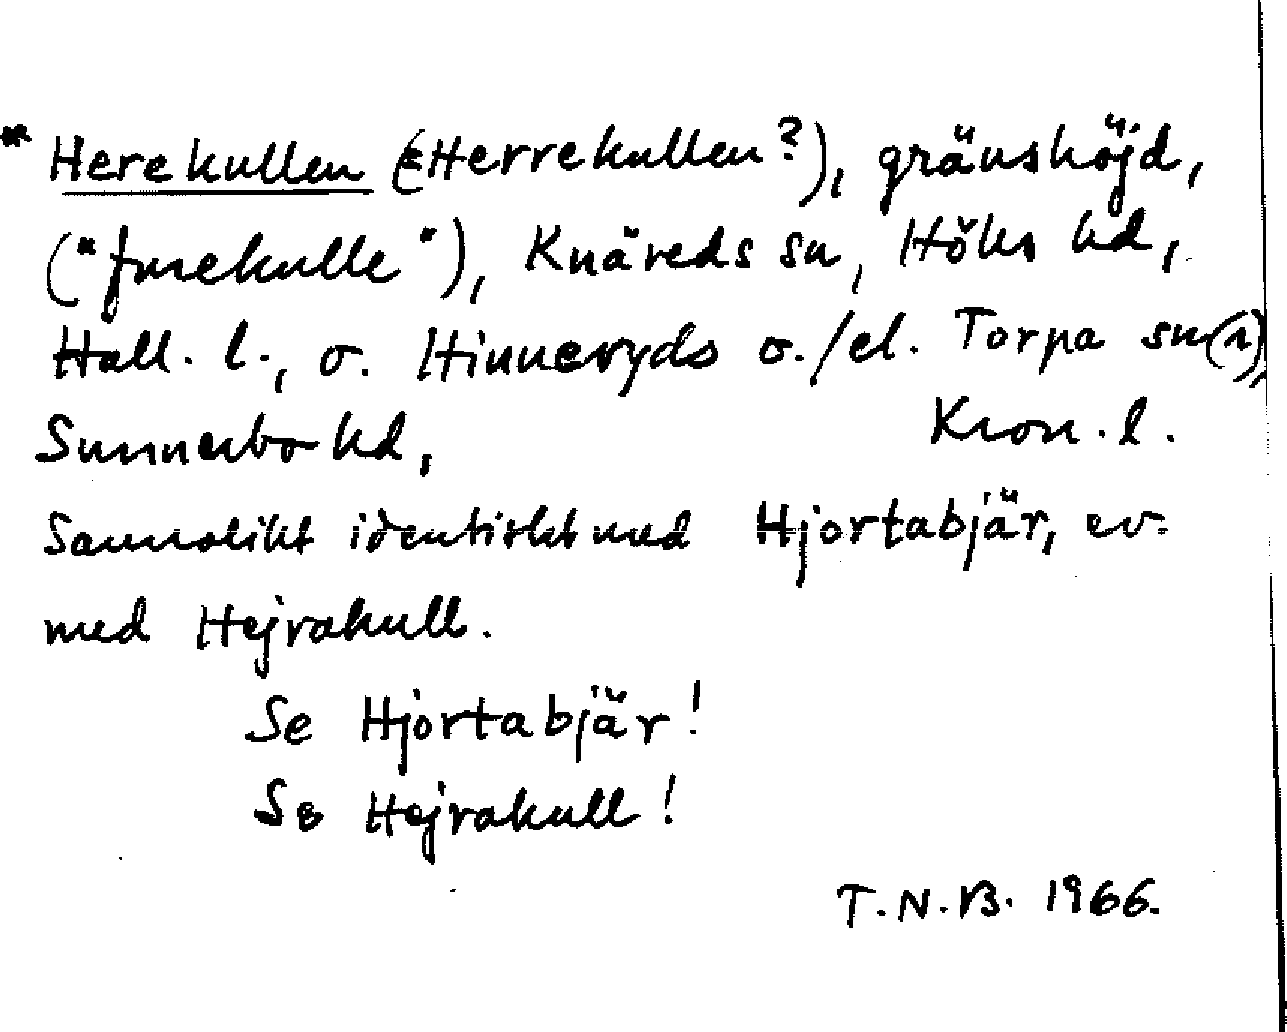 * Herekullen (Herrekullen?), gränshöjd,
("furekulle"), Knäreds sn, Höks hd,
Hall. l., o. Hinneryds o./el. Torpa sn(r),
Sunnerbo hd, Kron. l.
Sannolikt identiskt med Hjortabjär, ev.
med Hejrakull.
Se Hjortabjär!
Se Hejrakull!
T.N.B. 1966.